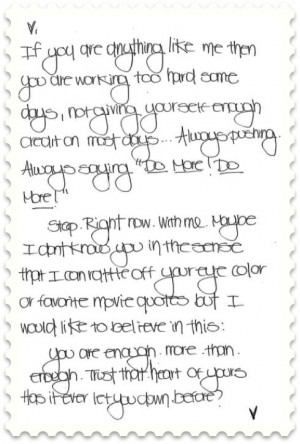 V,
If you are anything like me then
you are working too hard some
days, not giving yourself enough
credit on most days... Always pushing.
Always saying "Do More! Do
More!"
Stop. Right now. With me. Maybe
I dont know you in the sense
that I can rattle off your eye color
or favorite movie quotes but I
would like to believe in this:
you are enough. more. than.
enough. Trust that heart of yours
Has it ever let you down before?
V